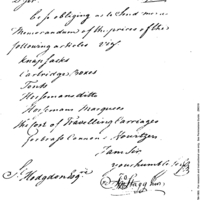 be so obliging as to Send me
Memorandums of the prices of the
following articles viz
Knapsacks
Cartridge Boxes
Tents
Horsemans ditto
Horsemans Marquees
the Cost of Travelling Carriages
for brass Cannon & Howitzers
I am Sir
your humble
S Hodgdon Esqr